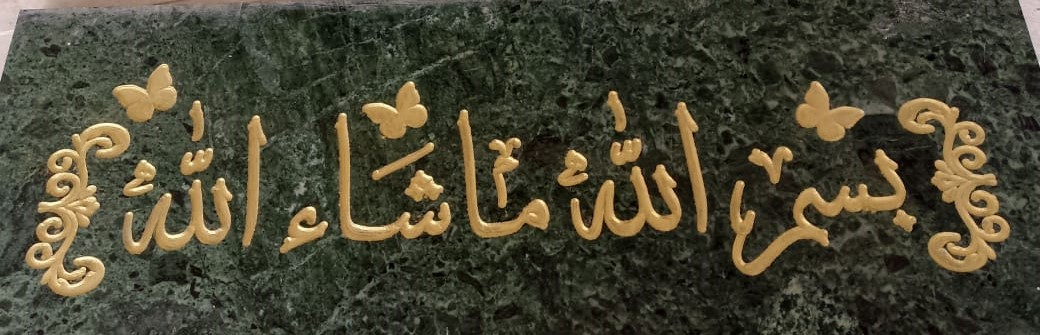 بسم اللّٰه ماشَاء اللّٰه